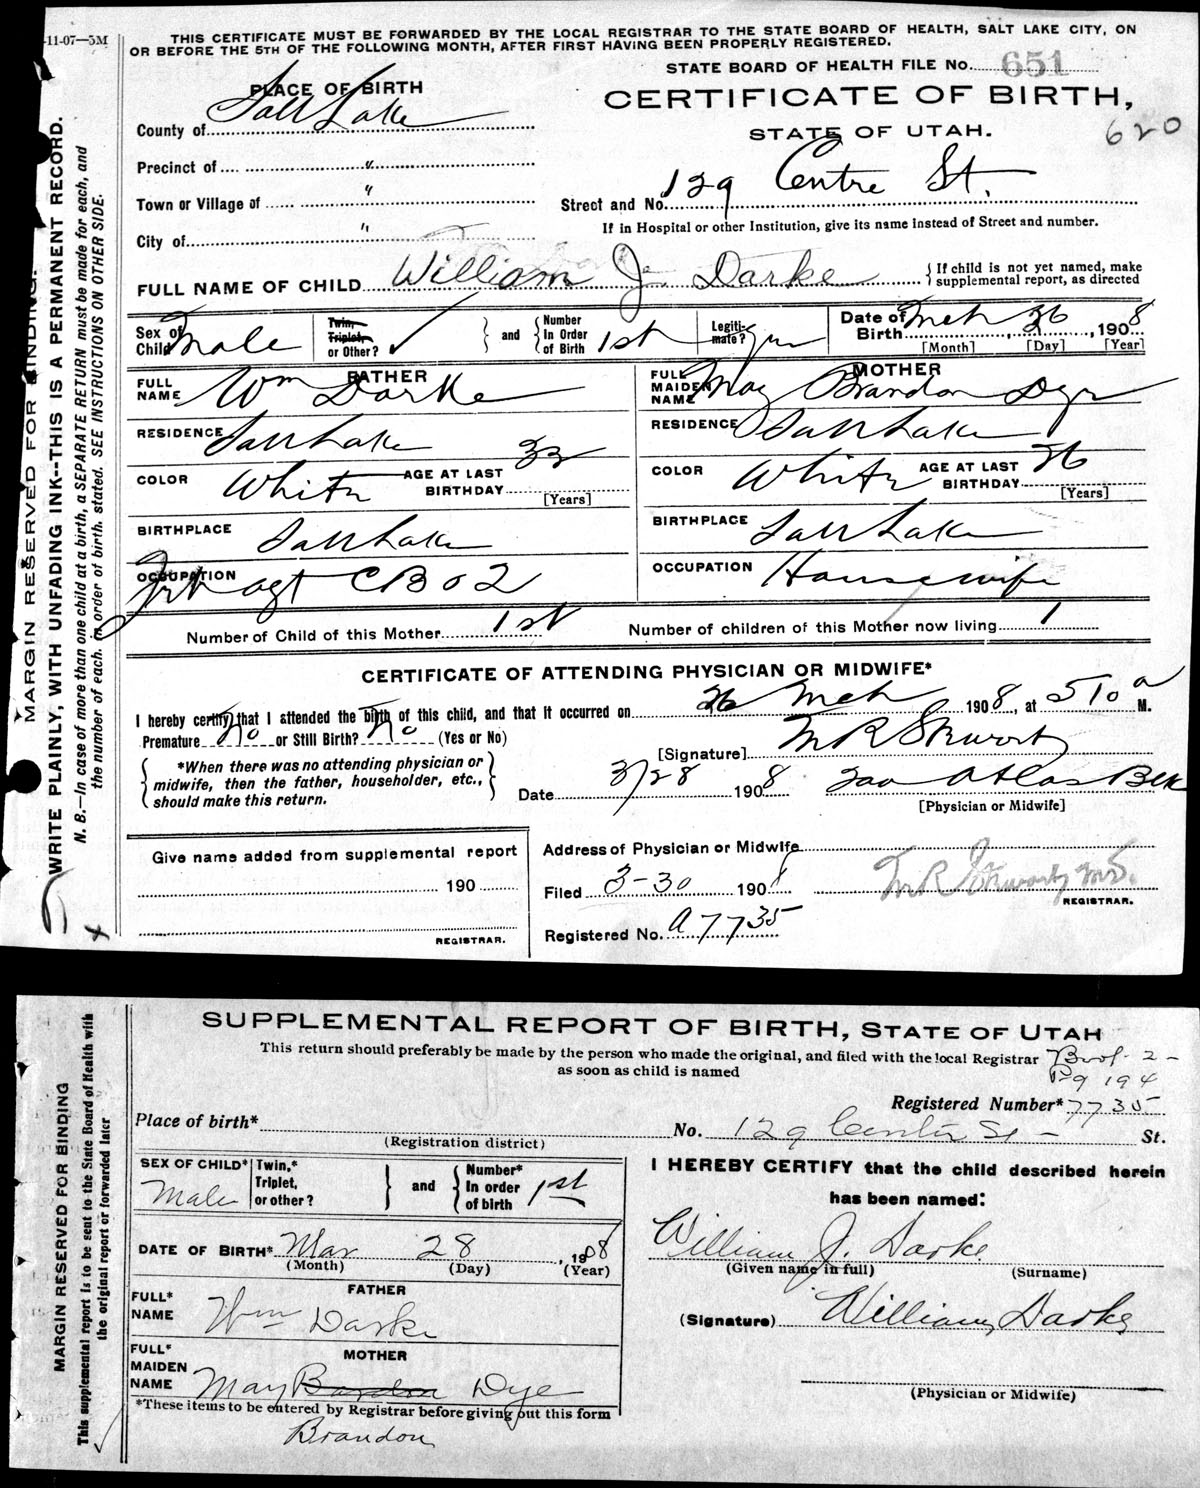 -11-07—5M
THIS CERTIFICATE MUST BE FORWARDED BY THE LOCAL REGISTRAR TO THE STATE BOARD OF HEALTH, SALT LAKE CITY, ON
OR BEFORE THE 5TH OF THE FOLLOWING MONTH, AFTER FIRST HAVING BEEN PROPERLY REGISTERED.
STATE BOARD OF HEALTH FILE No. 651
PLACE OF BIRTH
CERTIFICATE OF BIRTH,
STATE OF UTAH.
620
County of Salt Lake
Precinct of "
Town or Village of "
City of "
Street and No. 129 Centre St.
If in Hospital or other Institution, give its name instead of Street and number.
FULL NAME OF CHILD William J. Darke
{If child is not yet named, make
supplemental report, as directed
Sex of Child Male
Twin, Triplet, or Other? ✓
and
Number In Order of Birth 1st
Legiti-mate? yes
Date of Birth Mch 26, 1908
[Month] [Day] [Year]
FATHER
FULL NAME Wm Darke
RESIDENCE Salt Lake
COLOR White
AGE AT LAST BIRTHDAY 33
[Years]
BIRTHPLACE Salt Lake
OCCUPATION agt
MOTHER
FULL MAIDEN NAME May Brandon Dye
RESIDENCE Salt Lake
COLOR White
AGE AT LAST BIRTHDAY 26
[Years]
BIRTHPLACE Salt Lake
OCCUPATION Housewife
Number of Child of this Mother 1st
Number of children of this Mother now living 1
CERTIFICATE OF ATTENDING PHYSICIAN OR MIDWIFE*
I hereby certify that I attended the birth of this child, and that it occurred on 26 Mch 1908, at 510 a M.
Premature No or Still Birth? No (Yes or No)
*When there was no attending physician or
midwife, then the father, householder, etc.,
should make this return.
[Signature] M R Stewart
Date 3/28 1908
Atlas Blk
[Physician or Midwife]
Give name added from supplemental report
190
REGISTRAR.
Address of Physician or Midwife
Filed 3-30 1908
M R Stewart M.D.
REGISTRAR.
Registered No. A 7735
MARGIN RESERVED FOR BINDING.
WRITE PLAINLY, WITH UNFADING INK--THIS IS A PERMANENT RECORD.
N. B.—In case of more than one child at a birth, a SEPARATE RETURN must be made for each, and
the number of each, in order of birth, stated. SEE INSTRUCTIONS ON OTHER SIDE.
SUPPLEMENTAL REPORT OF BIRTH, STATE OF UTAH
This return should preferably be made by the person who made the original, and filed with the local Registrar
as soon as child is named
2-
Pg 194
Registered Number* 7735
Place of birth*
(Registration district)
No. 129 Center St - St.
SEX OF CHILD* Male
Twin,* Triplet, or other?
and
Number* In order of birth 1st
DATE OF BIRTH* Mar 28, 1908
(Month) (Day) (Year)
FATHER
FULL* NAME Wm Darke
MOTHER
FULL* MAIDEN NAME May Dye
*These items to be entered by Registrar before giving out this form
Brandon
I HEREBY CERTIFY that the child described herein
has been named:
William J. Darke
(Given name in full) (Surname)
(Signature) William Darke
(Physician or Midwife)
MARGIN RESERVED FOR BINDING
This supplemental report is to be sent to the State Board of Health with
the original report or forwarded later